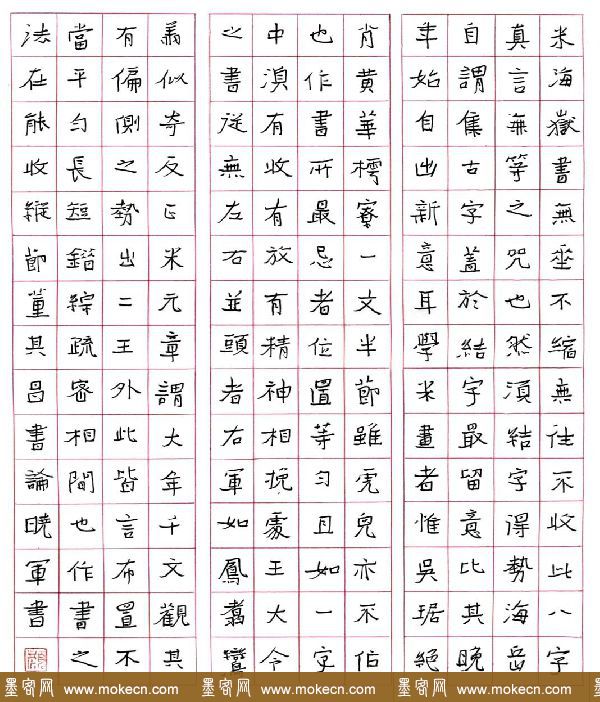 米海嶽書無垂不縮無往不收此八字
真言無等之咒也然須結字得勢海岳
自謂集古字蓋於結字最留意比其晚
年始自出新意耳學米畫者惟吳琚絕
肖黃華樗寮一文半節雖虎兒亦不佔
也作書所最忌者位置等勻且如一字
中湏有收有放有精神相挽處王大令
之書從無左右並頭者右軍如鳳翥鸞
翔似奇反正米元章謂大年千文觀其
有偏側之勢出二王外此皆言布置不
當平勻長短錯綜疏密相間也作書之
法在能收縱節董其昌書論曉軍書
墨客网 www.mokecn.com 墨客网 www.mokecn.com 墨客网 www.mokecn.com